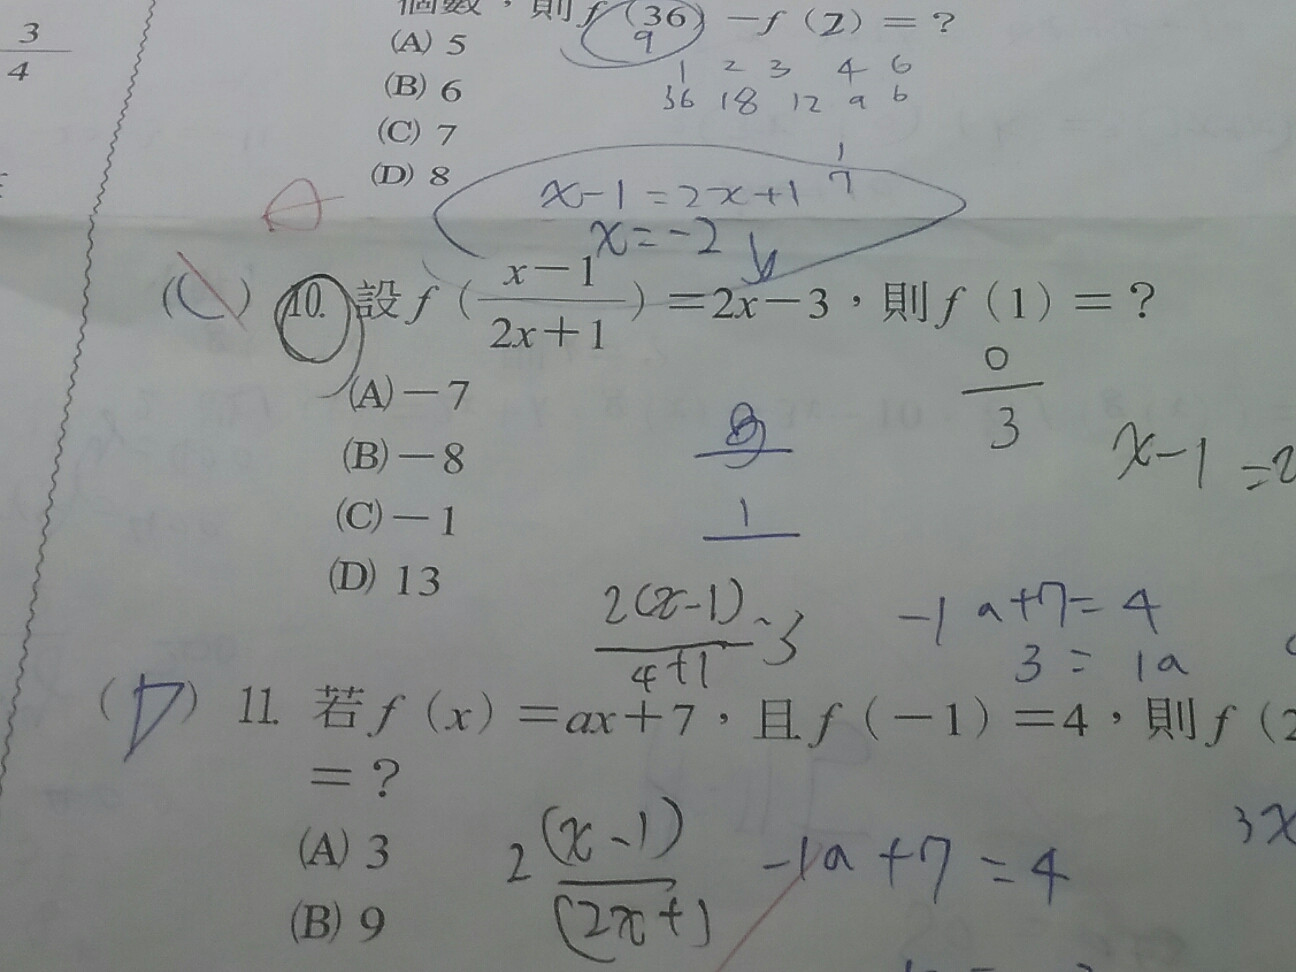 個數，則f(36)－f(2)＝?
9
(A) 5
(B) 6
(C) 7
(D) 8
1 2 3 4 6
36 18 12 9 6
1
7
3
4
x-1=2x+1
x=-2
( ) 10. 設f(x－1/2x＋1)＝2x－3，則f(1)＝?
(A)－7
(B)－8
(C)－1
(D) 13
0
3
x-1 =2
1
2(x-1)
4+1
-3
-1a+7=4
3=1a
(D) 11. 若f(x)＝ax＋7，且f(－1)＝4，則f(2
＝?
(A) 3
(B) 9
2 (x-1)
(2x+1
-1a+7=4
3x